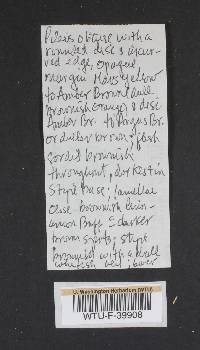 Pileus obtuse with a
rounded disc & incur-
ved edge, opaque,
margin Mars Yellow
to Amber Brown, dull
brownish Orange, & disc
Amber Br. to Argus Br.
or duller brown; flesh
sordid brownish
throughout, darkest in
Stipe base; lamellae
close brownish
Buff & darker
brown spots; stipe
brownish with a dull
whitish
U. Washington Herbarium (WTU)
WTU-F-39908